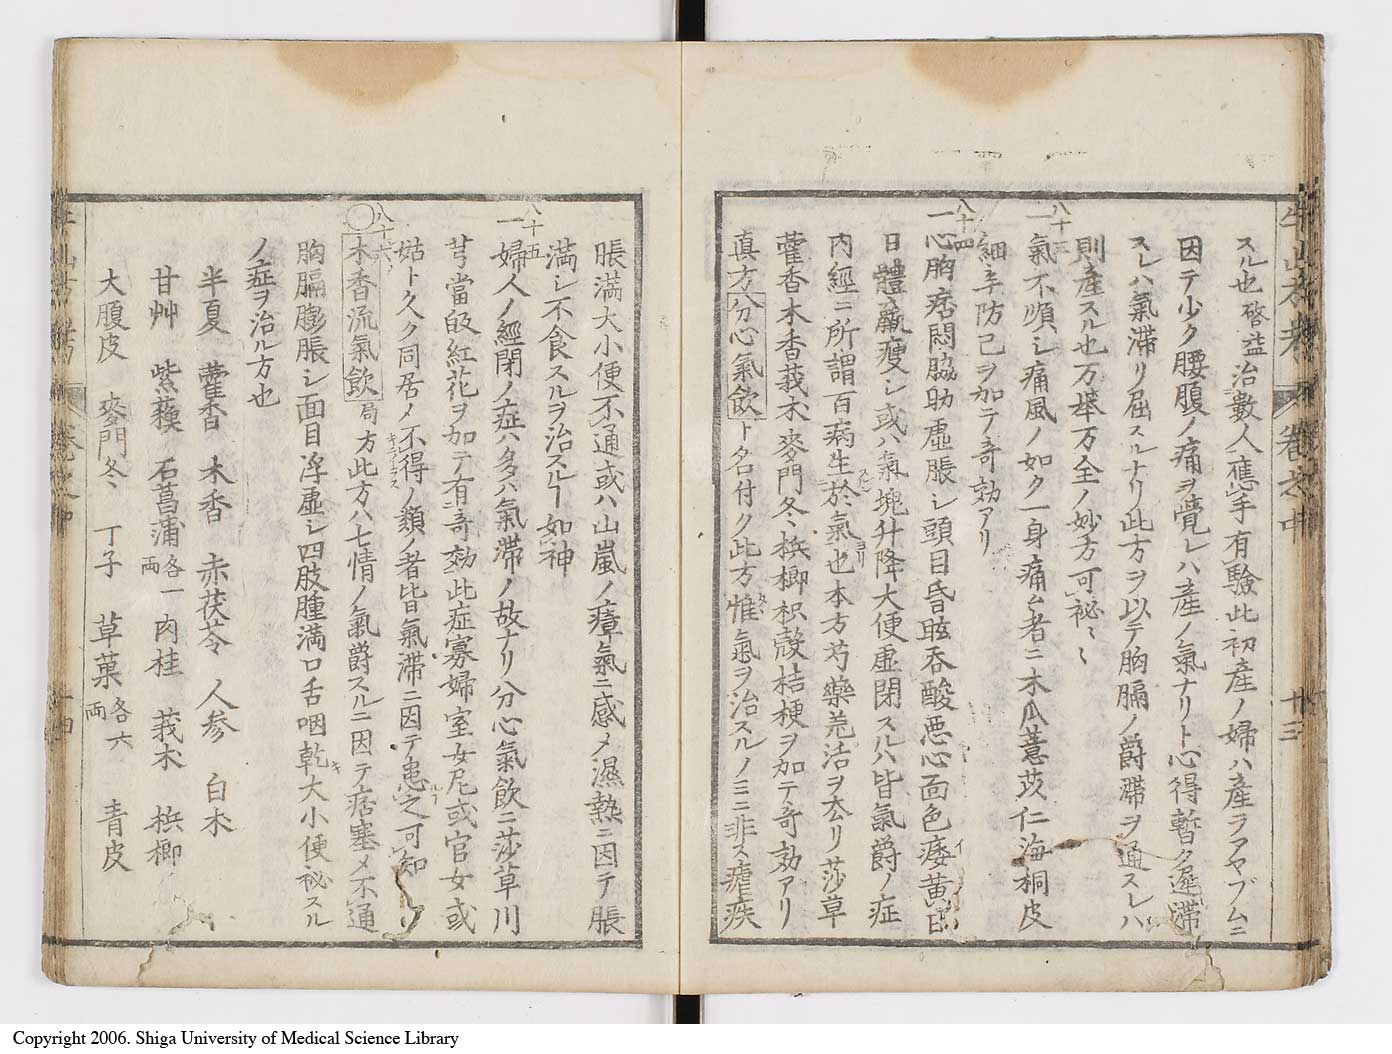 スル也啓益治數人應手有驗此初産ノ婦ハ産ヲアヤブムニ
因テ少ク腰腹ノ痛ヲ覺レハ産ノ氣ナリト心得暫ク遲滞
スレハ氣滞リ屈スルナリ此方ヲ以テ胸膈ノ爵滞ヲ通スレハ
則産スル也万擧万全ノ妙方可祕〻
八十三
一氣不順シ痛風ノ如ク一身痛ム者ニ木瓜薏苡仁海桐皮
細辛防己ヲ加テ奇効アリ
八十四
一心胸痞悶脇肋虚脹シ頭目昏眩呑酸悪心面色痿黄イ
日體羸瘦シ或ハ氣塊升降大便虚閉スルハ皆氣爵ノ症
内經ニ所謂百病生スト於ヨリ氣也本方芍藥羌活ヲ去リ莎草
藿香木香莪朮麥門冬〻梹榔枳殻桔梗ヲ加テ奇効アリ
真方分心氣飲ト名付ク此方惟タヽ氣ヲ治スルノミニ非ス瘧疾
卷之中
十三
脹満大小便不通或ハ山嵐ノ瘴氣ニ感メ濕熱ニ因テ脹
満シ不食スルヲ治スルヿ如神
八十五
一婦人ノ經閉ノ症ハ多ハ氣滞ノ故ナリ分心氣飲ニ莎草川
芎當皈紅花ヲ加テ有竒効此症寡婦室女尼或官女或
姑ト久ク同居ノ不得ノ類ノ者皆氣滞ニ因テ患フルヿ之可知
八十六
○木香流氣飲 局方此方ハ七情ノ氣爵スルニ因テ痞塞メ不通
胸膈膨脹シ面目浮虚シ四肢腫満口舌咽乾キ大小便秘スル
ノ症ヲ治ル方也
半夏 藿香 木香 赤茯苓 人参 白朮
甘艸 紫蘇 石菖蒲各一両 肉桂 莪朮 梹榔
大腹皮 麥門冬〻 丁子 草菓各六両 青皮
卷之中
十四
Copyright 2006. Shiga University of Medical Science Library